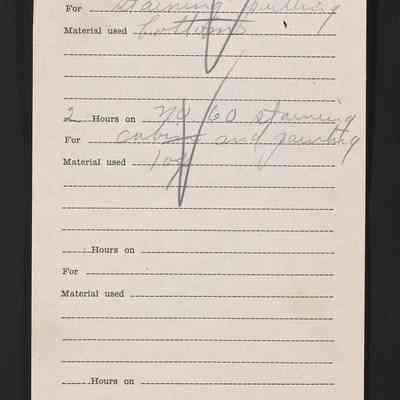 For staining putting
Material used bottoms
2 Hours on No 60 staining
For cabin and painting
Material used
Hours on
For
Material used
Hours on